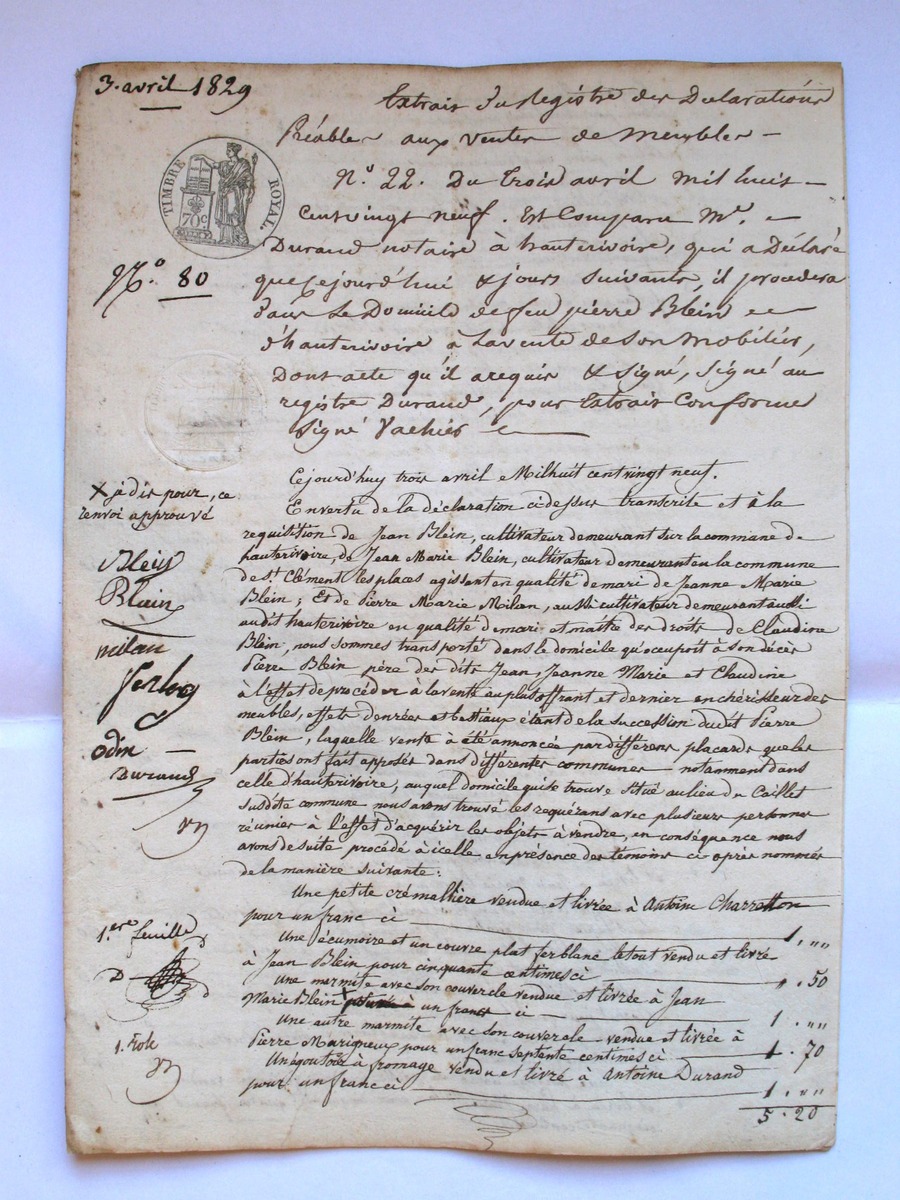 3. avril 1829
Extrait du Registre des Déclarations
Préables aux ventes de Meubles -
TIMBRE ROYAL.
70c
N.° 22. Du trois avril mil huit -
Cent vingt neuf. Est Comparu Mr. -
Durand notaire à hauterivoire, qui a Déclaré
N.° 80
que Cejourd'hui & jours suivants, il procedera
dans le Domicile de feu pierre Blein
d'hauterivoire à la vente de son Mobilier,
Dont acte qu'il a requis & signé, signé au
registre Durand, pour Extrait Conforme
Signé Vachier
Cejourd'huy trois avril Milhuit cent vingt neuf.
X je dis pour, ce
renvoi approuvé
En vertu de la déclaration ci dessus transcrite et à la
requisition de Jean Blein, cultivateur demeurant sur la commune de
hauterivoire, de Jean Marie Blein, cultivateur demeurant en la commune
de St. Clément les places agissant en qualité de mari de Jeanne Marie
Blein; Et de Pierre Marie Milan, aussi cultivateur demeurant aussi
audit hauterivoire en qualité de mari et maître des droits de Claudine
Blein, nous sommes transporté dans le domicile qu'occupoit à son décès
Pierre Blein père des dits Jean, Jeanne Marie et Claudine
à l'effet de procéder à la vente au plus offrant et dernier enchérisseur des
meubles, effets denrées et bestiaux étant de la succession dudit Pierre
Blein, laquelle vente à été annoncée par différens placards que les
parties ont fait apposés dans différentes communes notamment dans
celle d'hauterivoire, auquel domicile qui se trouve situé au lieu du Caillet
susdite commune nous avons trouvé les requérans avec plusieurs personnes
réunies à l'effet d'acquérir les objets à vendre, en conséquence nous
avons de suite procédé à icelle en présence des témoins ci après nommés
de la manière suivante:
Blein
Blein
milan
odin -
Durand
Une petite crémallière vendue et livrée à Antoine Charretton
pour un franc ci 1. ""
1.ere feuille
Une écumoire et un couvre plat fer blanc le tout vendu et livré
à Jean Blein pour cinquante centimes ci " . 50
Une marmite avec son couvercle vendue et livrée à Jean
Marie Blein X un franc ci - 1 . ""
Une autre marmite avec son couvercle vendue et livrée à
1. Role
Pierre Marigneux pour un franc septente centimes ci 1 . 70
Un égoutoir à fromage vendu et livré à Antoine Durand
pour un franc ci 1 . ""
5 . 20